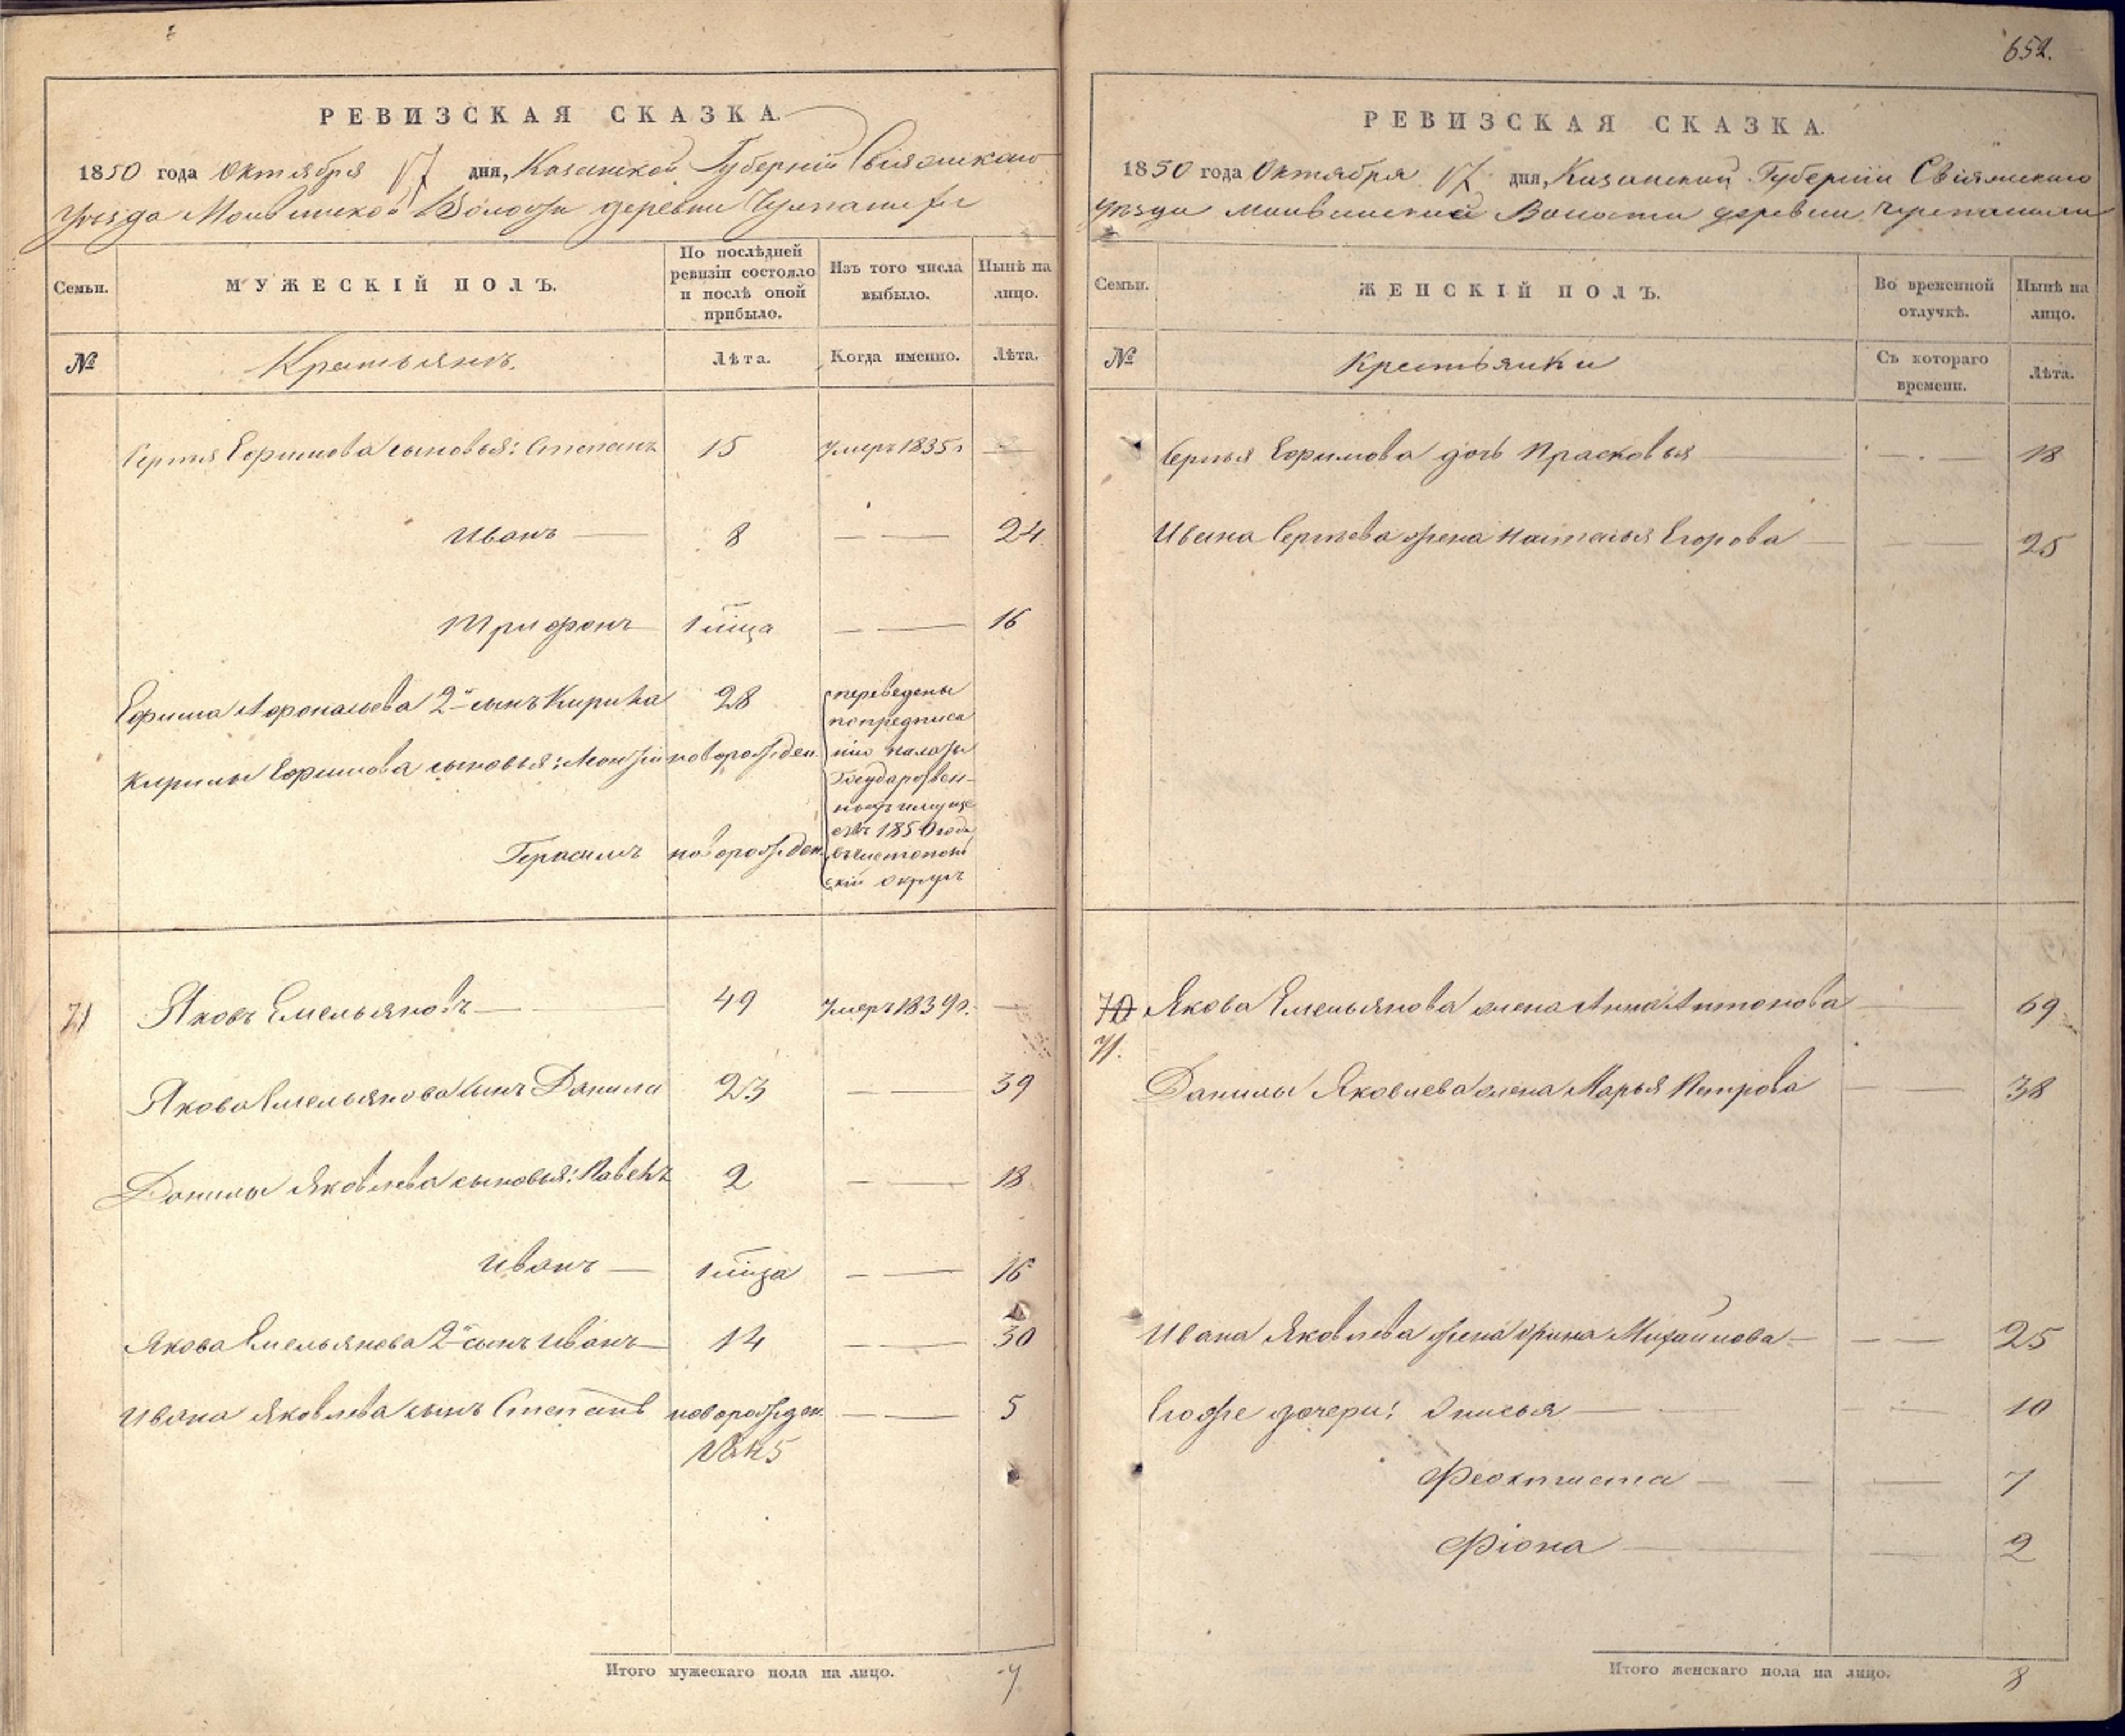 РЕВИЗСКАЯ СКАЗКА.
1850 года Октября 17 дня, Казанской Губерніи Свіяжскаго
Уѣзда Волости деревни
Семьи.
МУЖЕСКІЙ ПОЛЪ.
По послѣдней ревизіи состояло и послѣ оной прибыло.
Изъ того числа выбыло.
Нынѣ на лицо.
№
Крестьянъ.
Лѣта.
Когда именно.
Лѣта.
Сергѣя Ефимова сыновья: Степанъ 15 Умеръ 1835 г —
Иванъ — 8 — — 24
Трифонъ 1 мѣсяца — — 16
Ефима Афонасьева 2й сынъ Кирила 28
Кирилы Ефимова сыновья: новорожден.
Герасимъ новорожден.
переведены
по предписа
нію палаты
Государствен-
ныхъ имуще
ствъ 1850 года
въ Чистополь
скій округъ
71 Яковъ Емельяновъ — 49 Умеръ 1839 г. —
Якова Емельянова сынъ Данила 23 — — 39
Данилы Яковлева сыновья: Павелъ 2 — — 18
Иванъ — 1 мѣсяца — — 16
Якова Емельянова 2й сынъ Иванъ — 14 — — 30
Ивана Яковлева сынъ Степанъ новорожден. — — 5
1845
Итого мужескаго пола на лицо. 7
652.
РЕВИЗСКАЯ СКАЗКА.
1850 года Октября 17 дня, Казанской Губерніи Свіяжскаго
Уѣзда Волости деревни
Семьи.
ЖЕНСКІЙ ПОЛЪ.
Во временной отлучкѣ.
Нынѣ на лицо.
№
Крестьянки
Съ котораго времени.
Лѣта.
Сергѣя Ефимова дочь Прасковья — — 18
Ивана Сергѣева жена Наталья Егорова — — 25
70 Якова Емельянова жена Анна Антонова — 69
71.
Данилы Яковлева жена Марья Петрова — — 38
Ивана Яковлева жена Орина Михайлова — — — 25
Егоже дочери: Анисья — — — 10
Феоктиста — — — 7
Фіона — — 2
Итого женскаго пола на лицо. 8